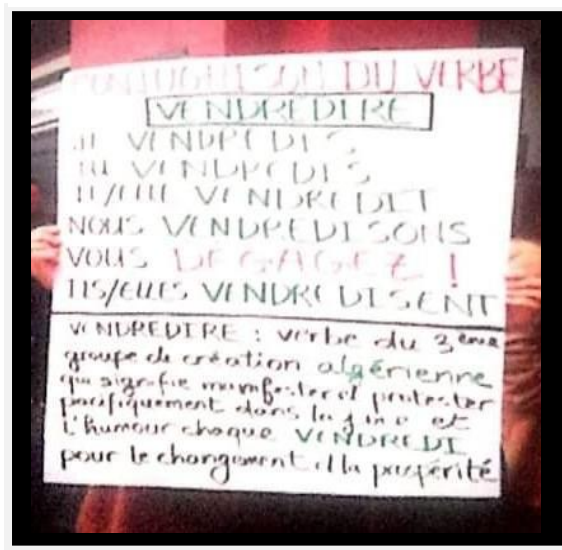 CONJUGAISON DU VERBE
VENDREDIRE
JE VENDREDIS
TU VENDREDIS
IL/ELLE VENDREDIT
NOUS VENDREDISONS
VOUS DÉGAGEZ !
ILS/ELLES VENDREDISENT
VENDREDIRE : verbe du 3ème
groupe de création algérienne
qui signifie manifester et protester
pacifiquement dans la joie et
l'humour chaque VENDREDI
pour le changement, la prospérité